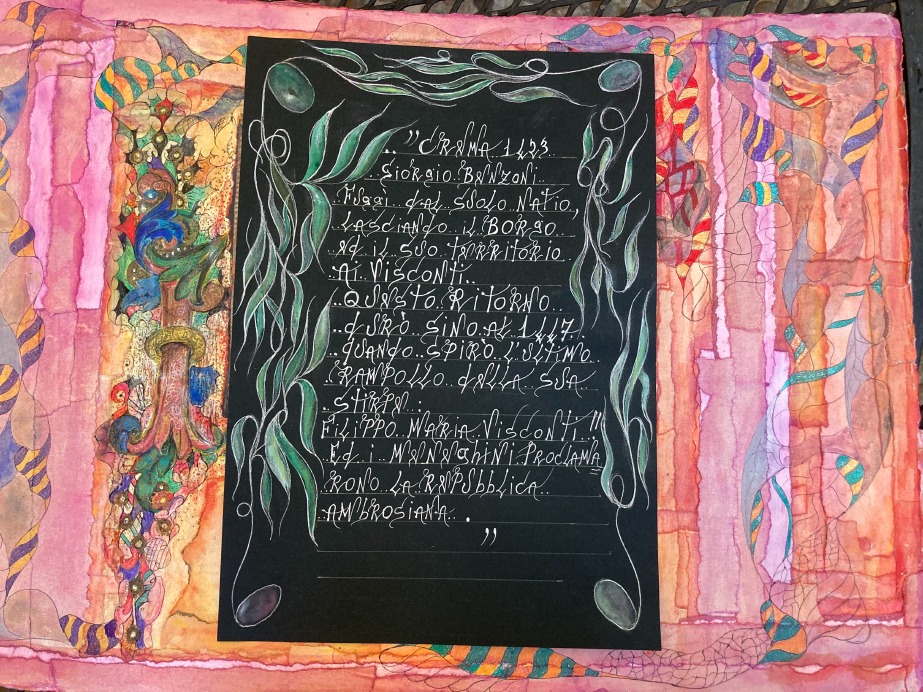 .. " CREMA 1423.
GIORGIO BENZONI.
FUGGI DAL SUOLO NATIO,
LASCIANDO IL BORGO
ED IL SUO TERRITORIO
AI VISCONTI.
..QUESTO RITORNO..
..DURÒ SINO AL 1447.
..QUANDO SPIRÒ L'ULTIMO..
CRAMPOLLO DELLA SUA
..STIRPE..:
FILIPPO..MARIA VISCONTI.."
..ED I MENEGHINI PROCLAMA=
RONO LA REPUBBLICA..
AMBROSIANA.. .
"